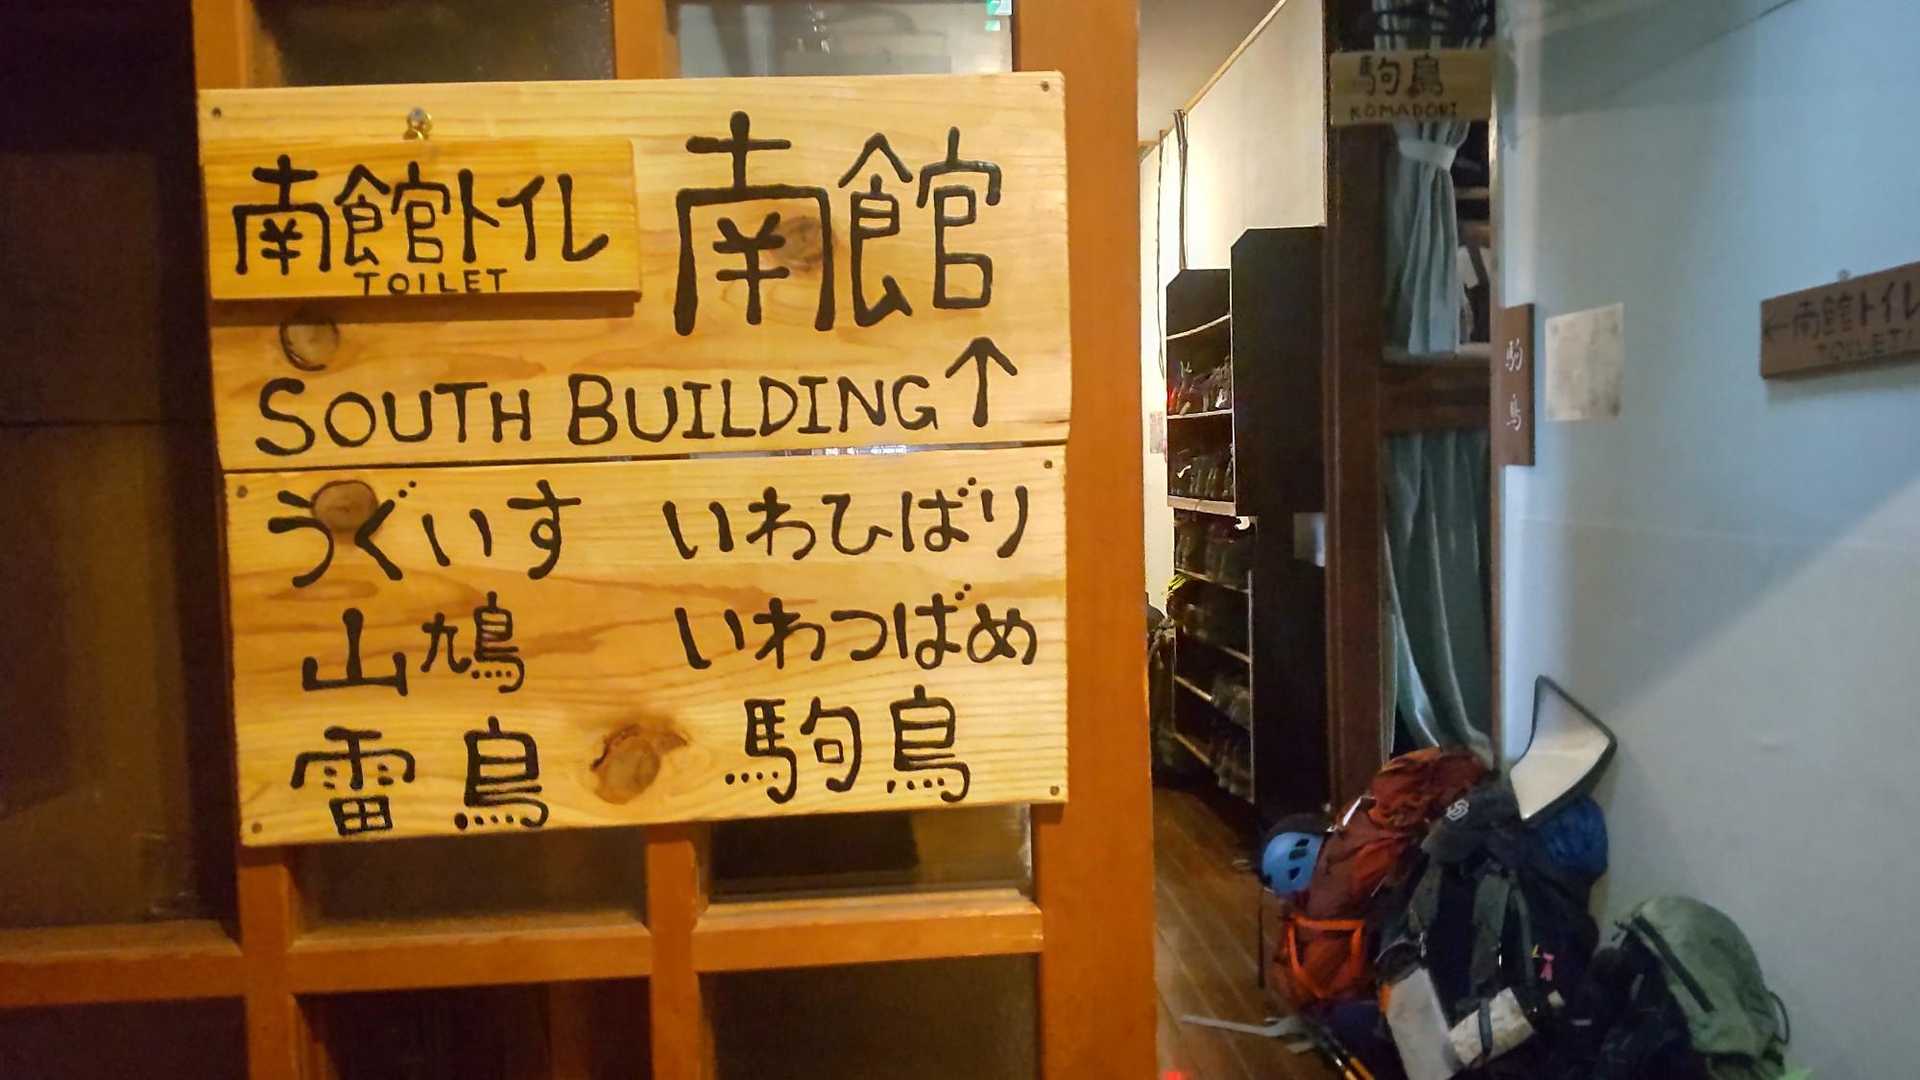 南館トイレ
TOILET
南館
SOUTH BUILDING↑
うぐいす いわひばり
山鳩 いわつばめ
雷鳥 駒鳥
駒鳥
KOMADORI
駒鳥
←南館トイレ
TOILET